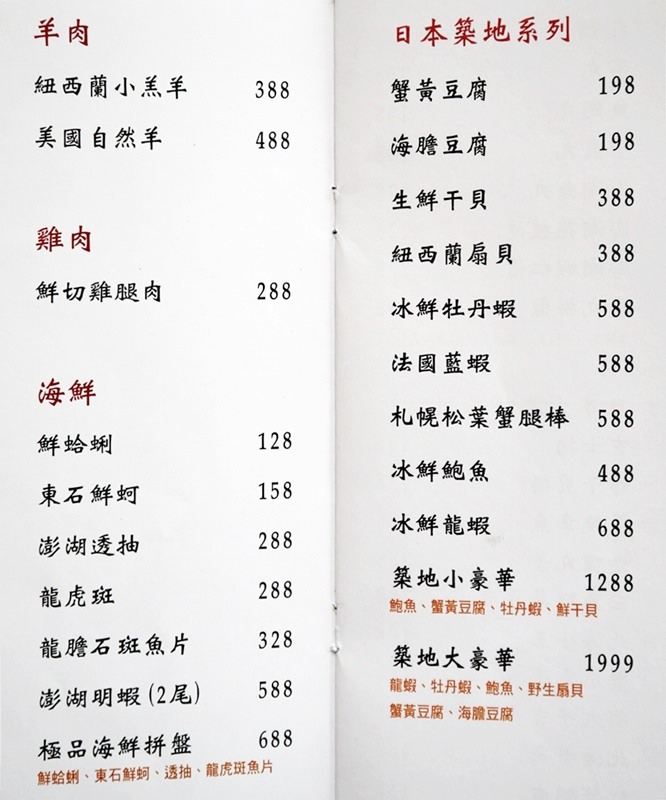 羊肉
紐西蘭小羔羊 388
美國自然羊 488
雞肉
鮮切雞腿肉 288
海鮮
鮮蛤蜊 128
東石鮮蚵 158
澎湖透抽 288
龍虎斑 288
龍膽石斑魚片 328
澎湖明蝦(2尾) 588
極品海鮮拼盤 688
鮮蛤蜊、東石鮮蚵、透抽、龍虎斑魚片
日本築地系列
蟹黃豆腐 198
海膽豆腐 198
生鮮干貝 388
紐西蘭扇貝 388
冰鮮牡丹蝦 588
法國藍蝦 588
札幌松葉蟹腿棒 588
冰鮮鮑魚 488
冰鮮龍蝦 688
築地小豪華 1288
鮑魚、蟹黃豆腐、牡丹蝦、鮮干貝
築地大豪華 1999
龍蝦、牡丹蝦、鮑魚、野生扇貝
蟹黃豆腐、海膽豆腐